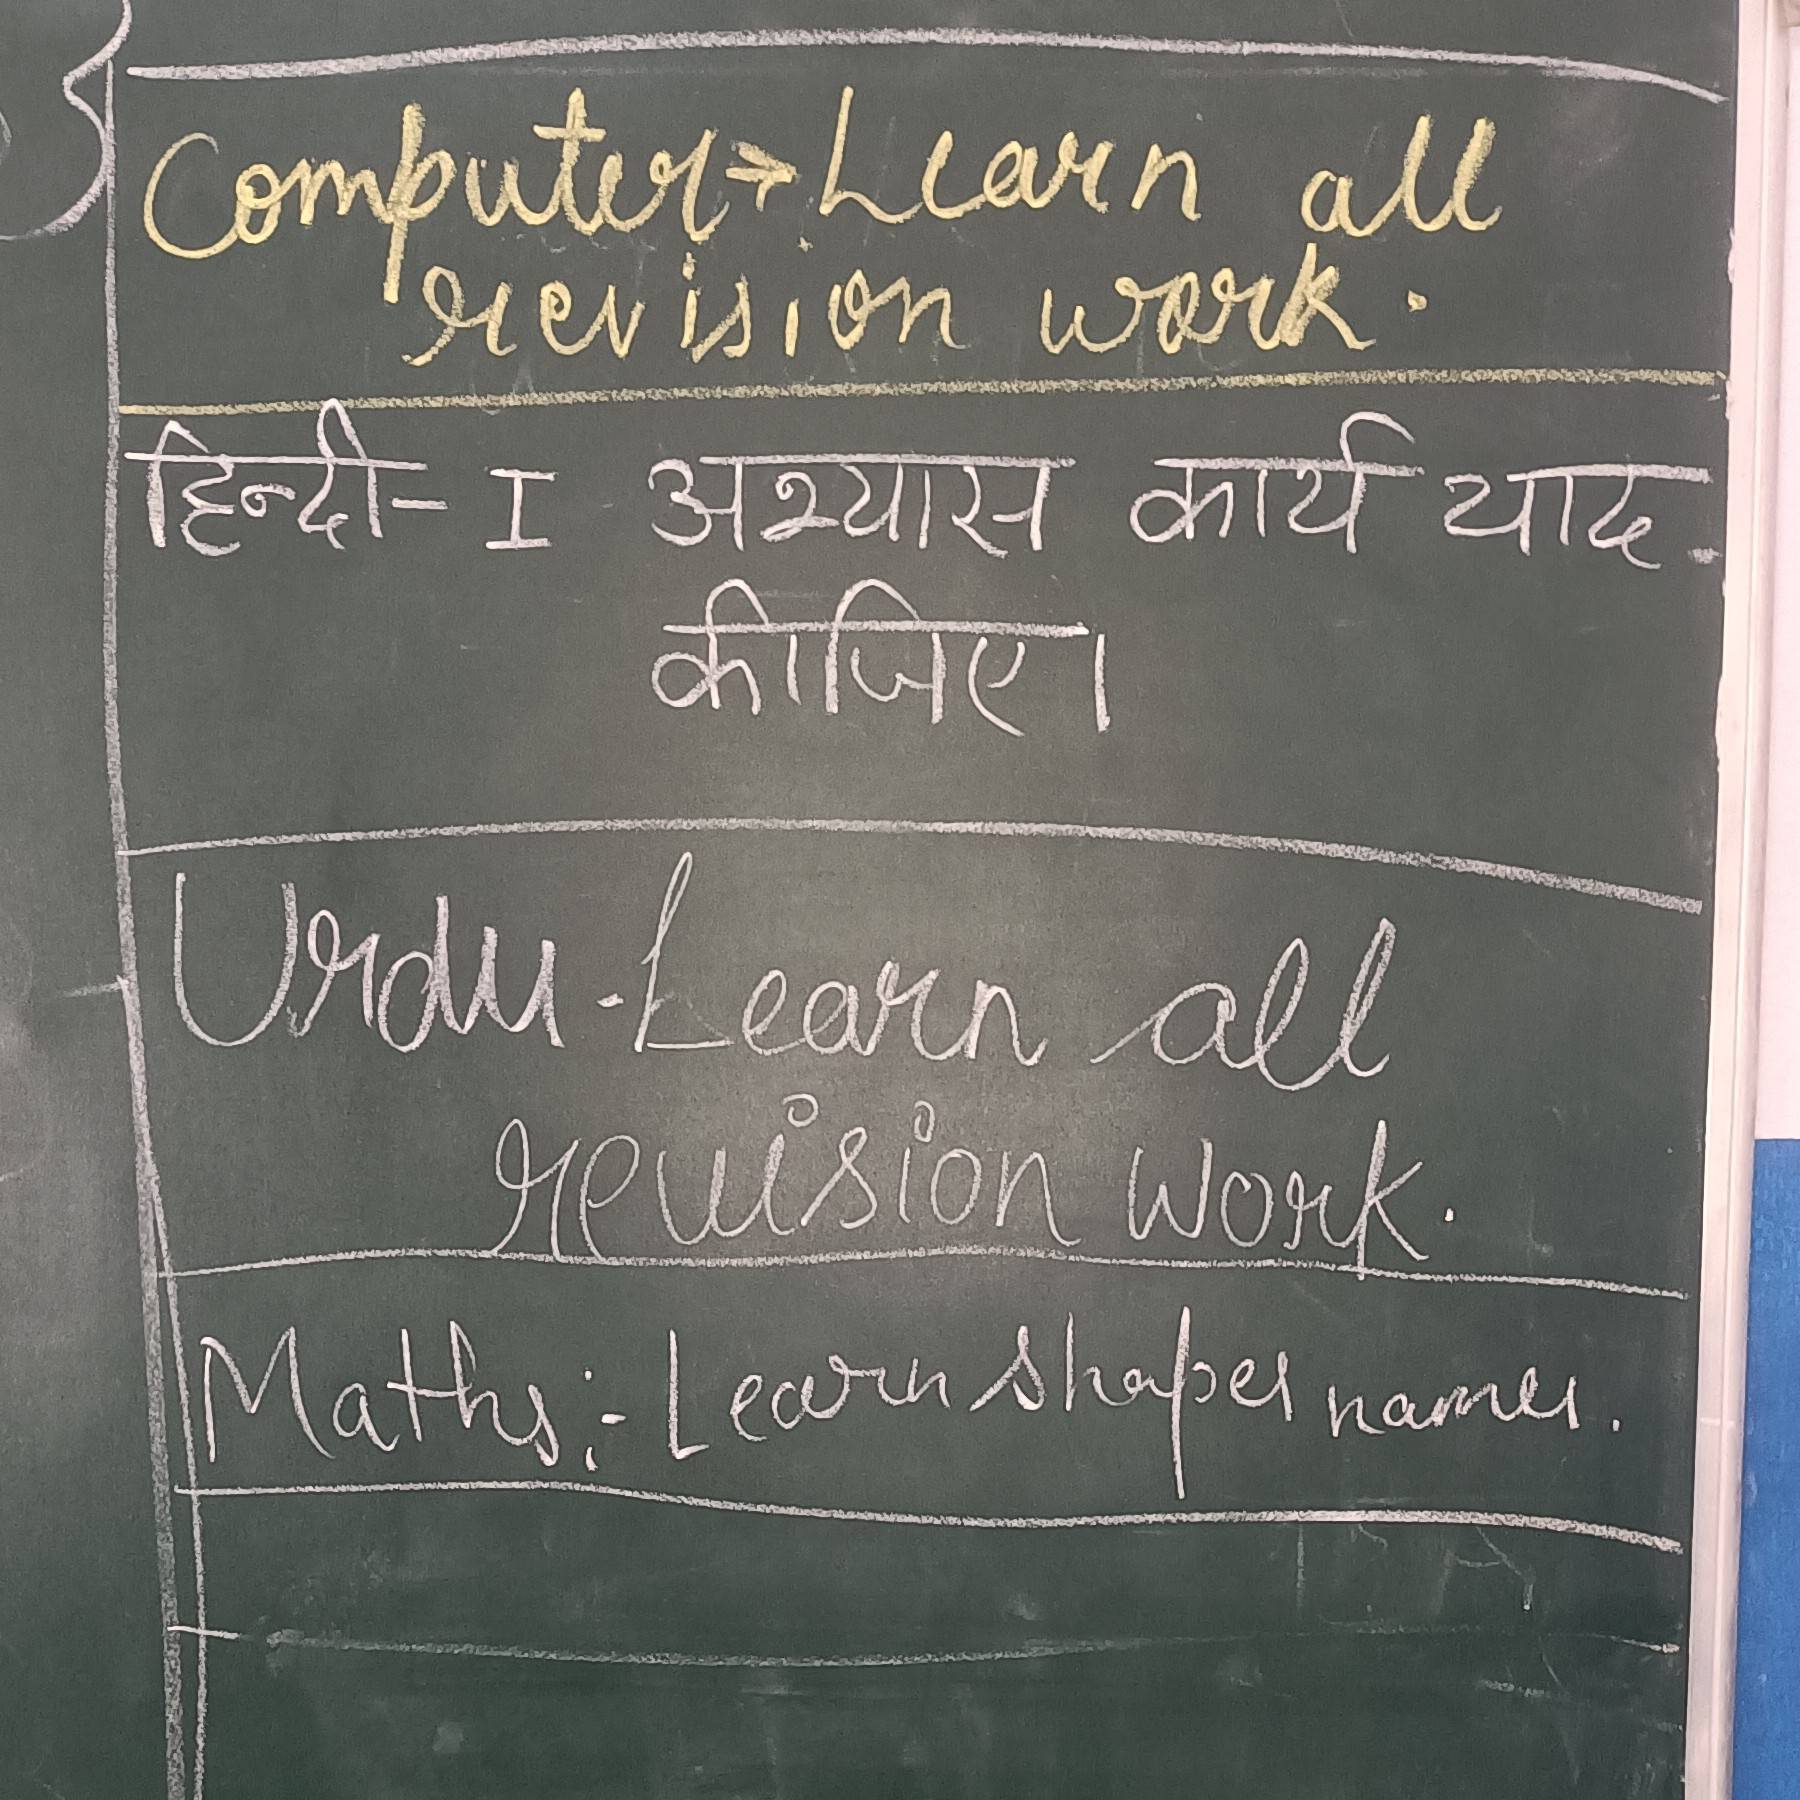 Computer→Learn all
revision work.
हिन्दी- I अभ्यास कार्य याद
कीजिए।
Urdu-Learn all
revision work.
Maths:- Learn shapes names.